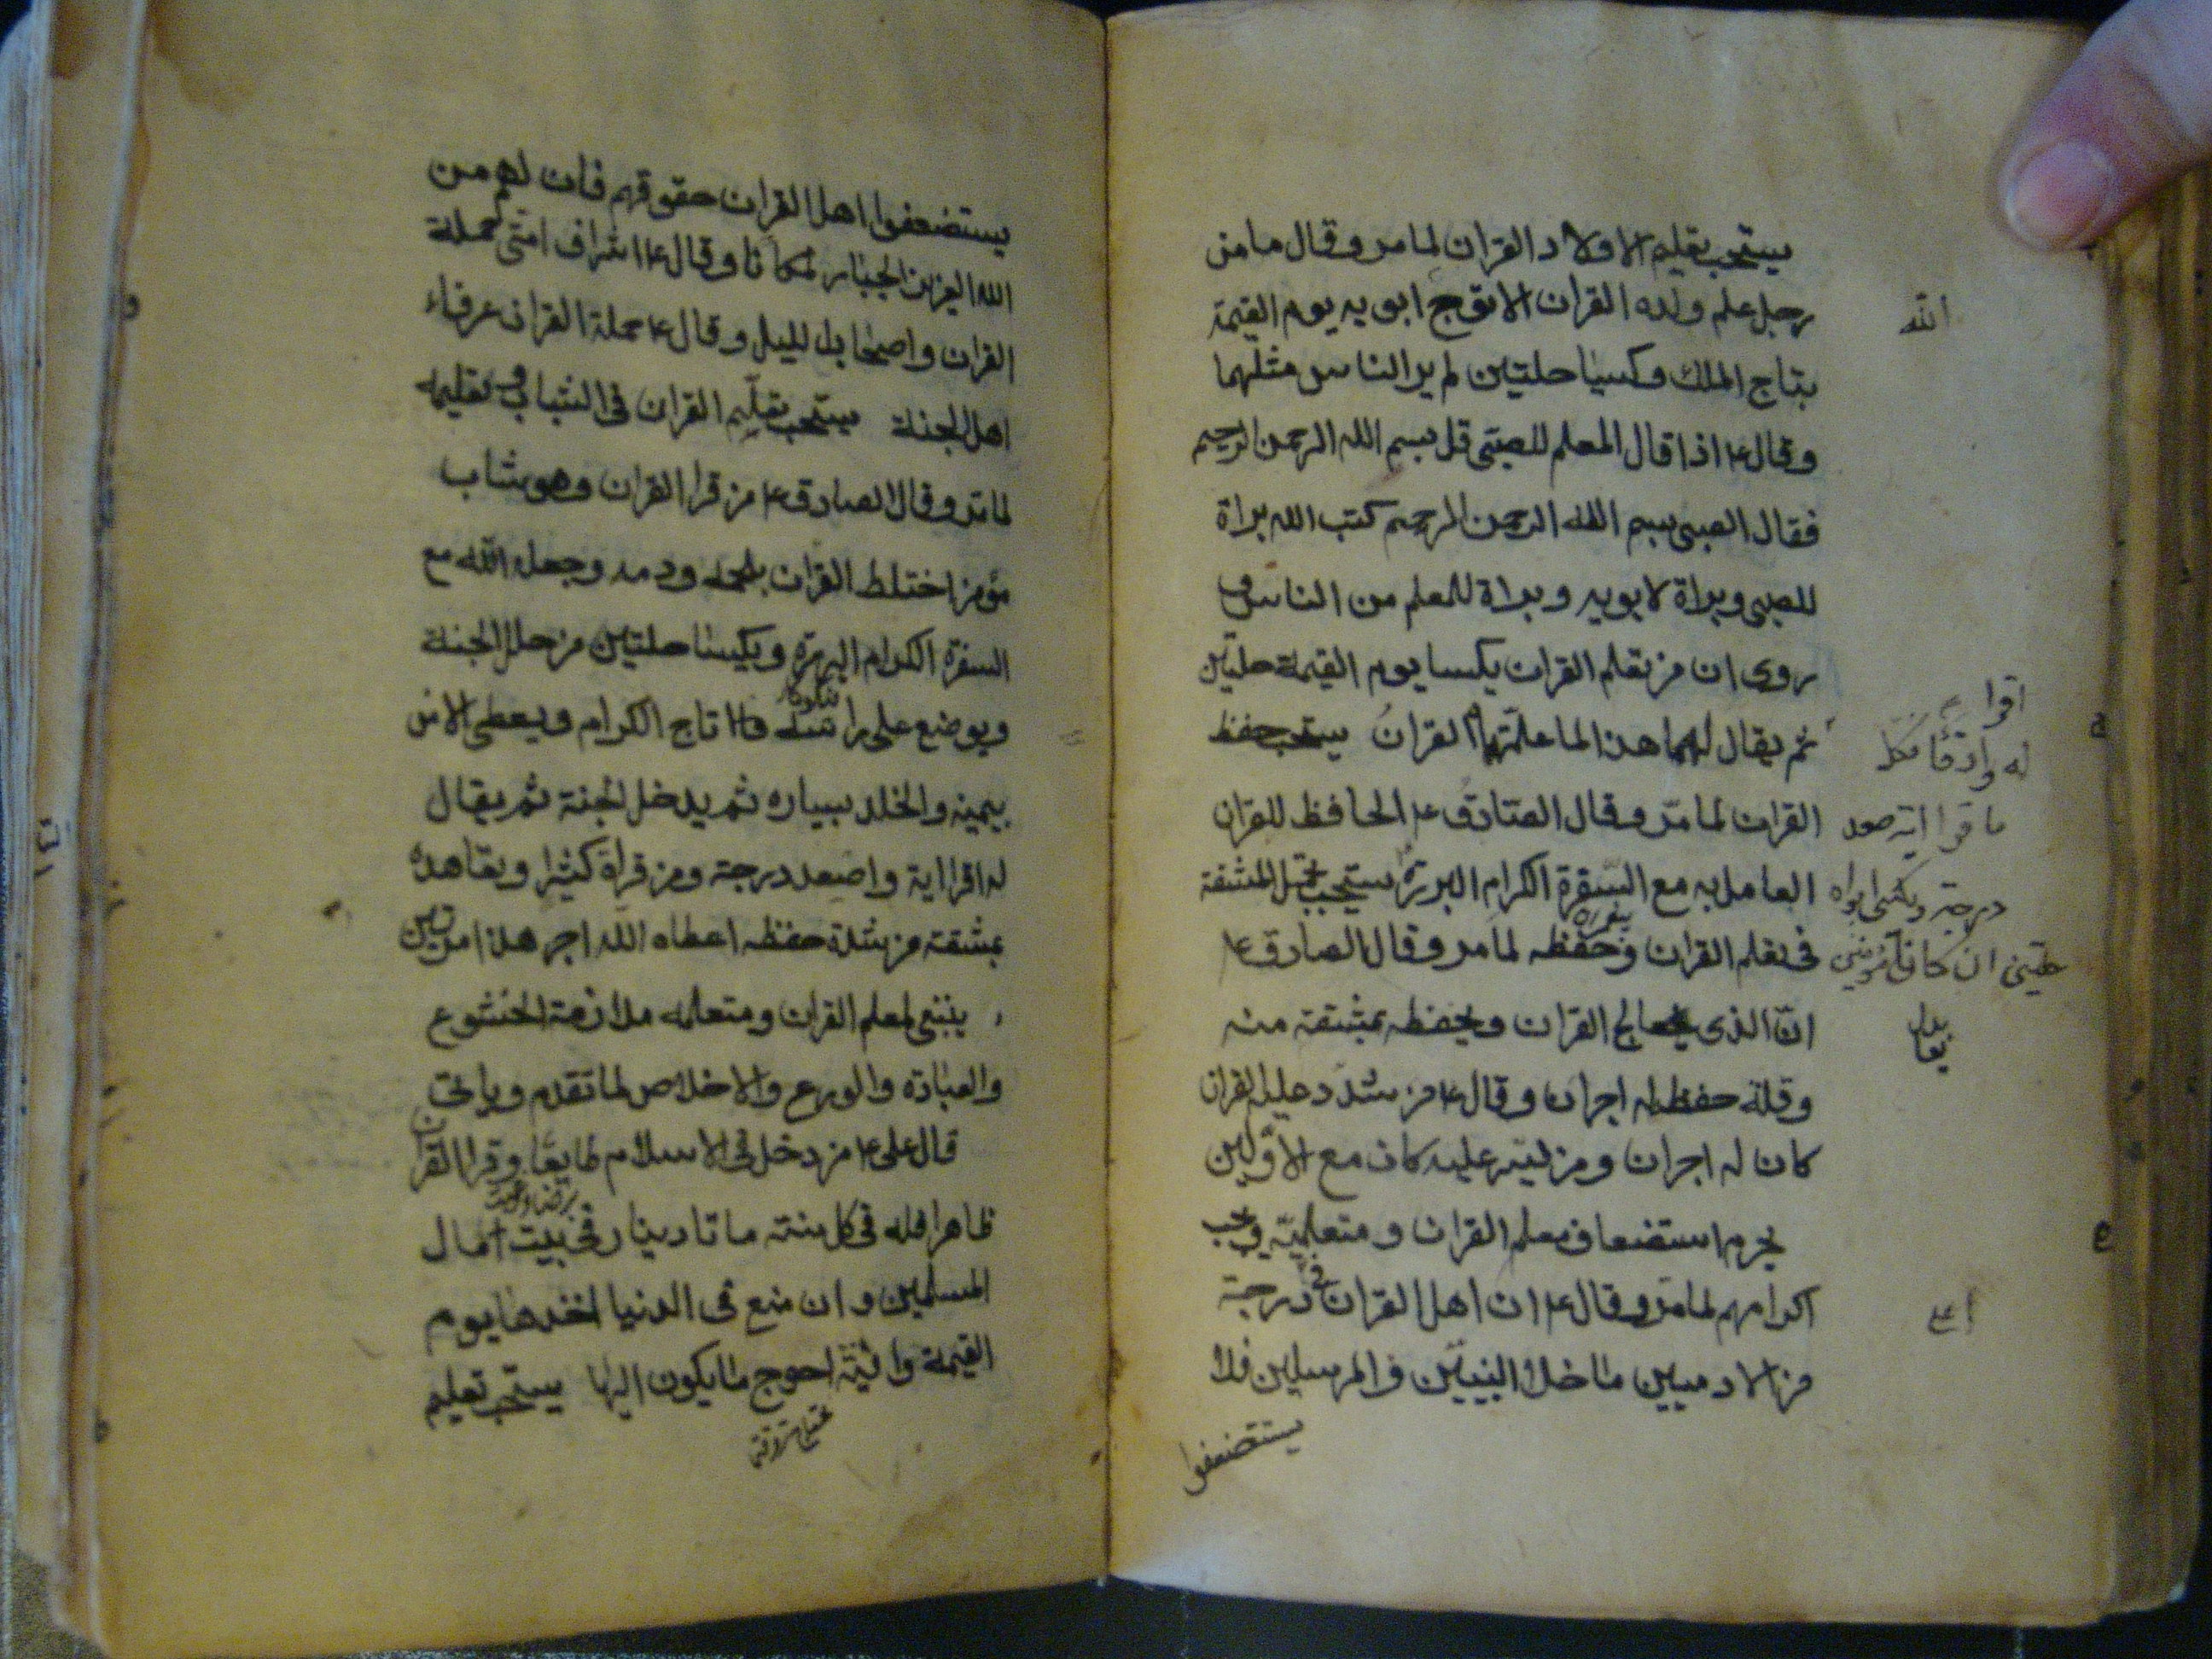 يستحب تعليم الاولاد القران لما مر وقال ما من
رجل علم ولده القران الا توج ابويه يوم القيمة
الله
بتاج الملك وكسيا حلتين لم ير الناس مثلهما
وقال ع اذا قال المعلم للصبى قل بسم الله الرحمن الرحيم
فقال الصبى بسم الله الرحمن الرحيم كتب الله براة
للصبى وبراة لابويه وبراة للمعلم من الناس وفى
روى ان من تعلم القران يكسا يوم القيمة حلتين
ثم يقال لهما هذا لما علمتهما القران يستحب حفظ
اقرا
له وارقا فكل
القران لما مر وقال الصادق ع الحافظ للقران
ما قرا اية صعد
العامل به مع السفرة الكرام البررة يستحب تحمل المشقة
درجة ويكسى ابواه
فى تعلم القران وحفظه لما مر وقال الصادق ع
حلتين ان كانا مؤمنين
ان الذى يعالج القران ويحفظه بمشقة منه
وقلة حفظ له اجران وقال ع من شدد عليه القران
كان له اجران ومن يسر عليه كان مع الاولين
يحرم استضعاف معلم القران ومتعلميه ويجب
اكرامهم لما مر وقال ع ان اهل القران فى درجة
اعلى
من الادميين ما خلا النبيين والمرسلين فلا
يستضعفوا
يستضعفوا اهل القران حقوقهم فان لهم من
الله العزيز الجبار لمكانا وقال ع اشراف امتى حملة
القران واصحاب الليل وقال ع حملة القران عرفاء
اهل الجنة يستحب تعليم القران فى الشباب وتعليمه
لما مر وقال الصادق ع من قرا القران وهو شاب
مؤمن اختلط القران بلحمه ودمه وجعله الله مع
السفرة الكرام البررة ويكسا حلتين من حلل الجنة
ويوضع على راسه تاج الكرام ويعطى الامن
بيمينه والخلد بيساره ثم يدخل الجنة ثم يقال
له اقرا اية واصعد درجة ومن قراه كثيرا وتعاهده
بمشقة من شدة حفظه اعطاه الله اجر هذا مرتين
ينبغى لمعلم القران ومتعلمه ملازمة الخشوع
والعبادة والورع والاخلاص لما تقدم وياتى
قال على ع من دخل فى الاسلام طايعا وقرا القران
ظاهرا فله فى كل سنة ماتا دينار فى بيت مال
المسلمين وان منع فى الدنيا اخذها يوم
القيمة وافية احوج ما يكون اليها يستحب تعليم